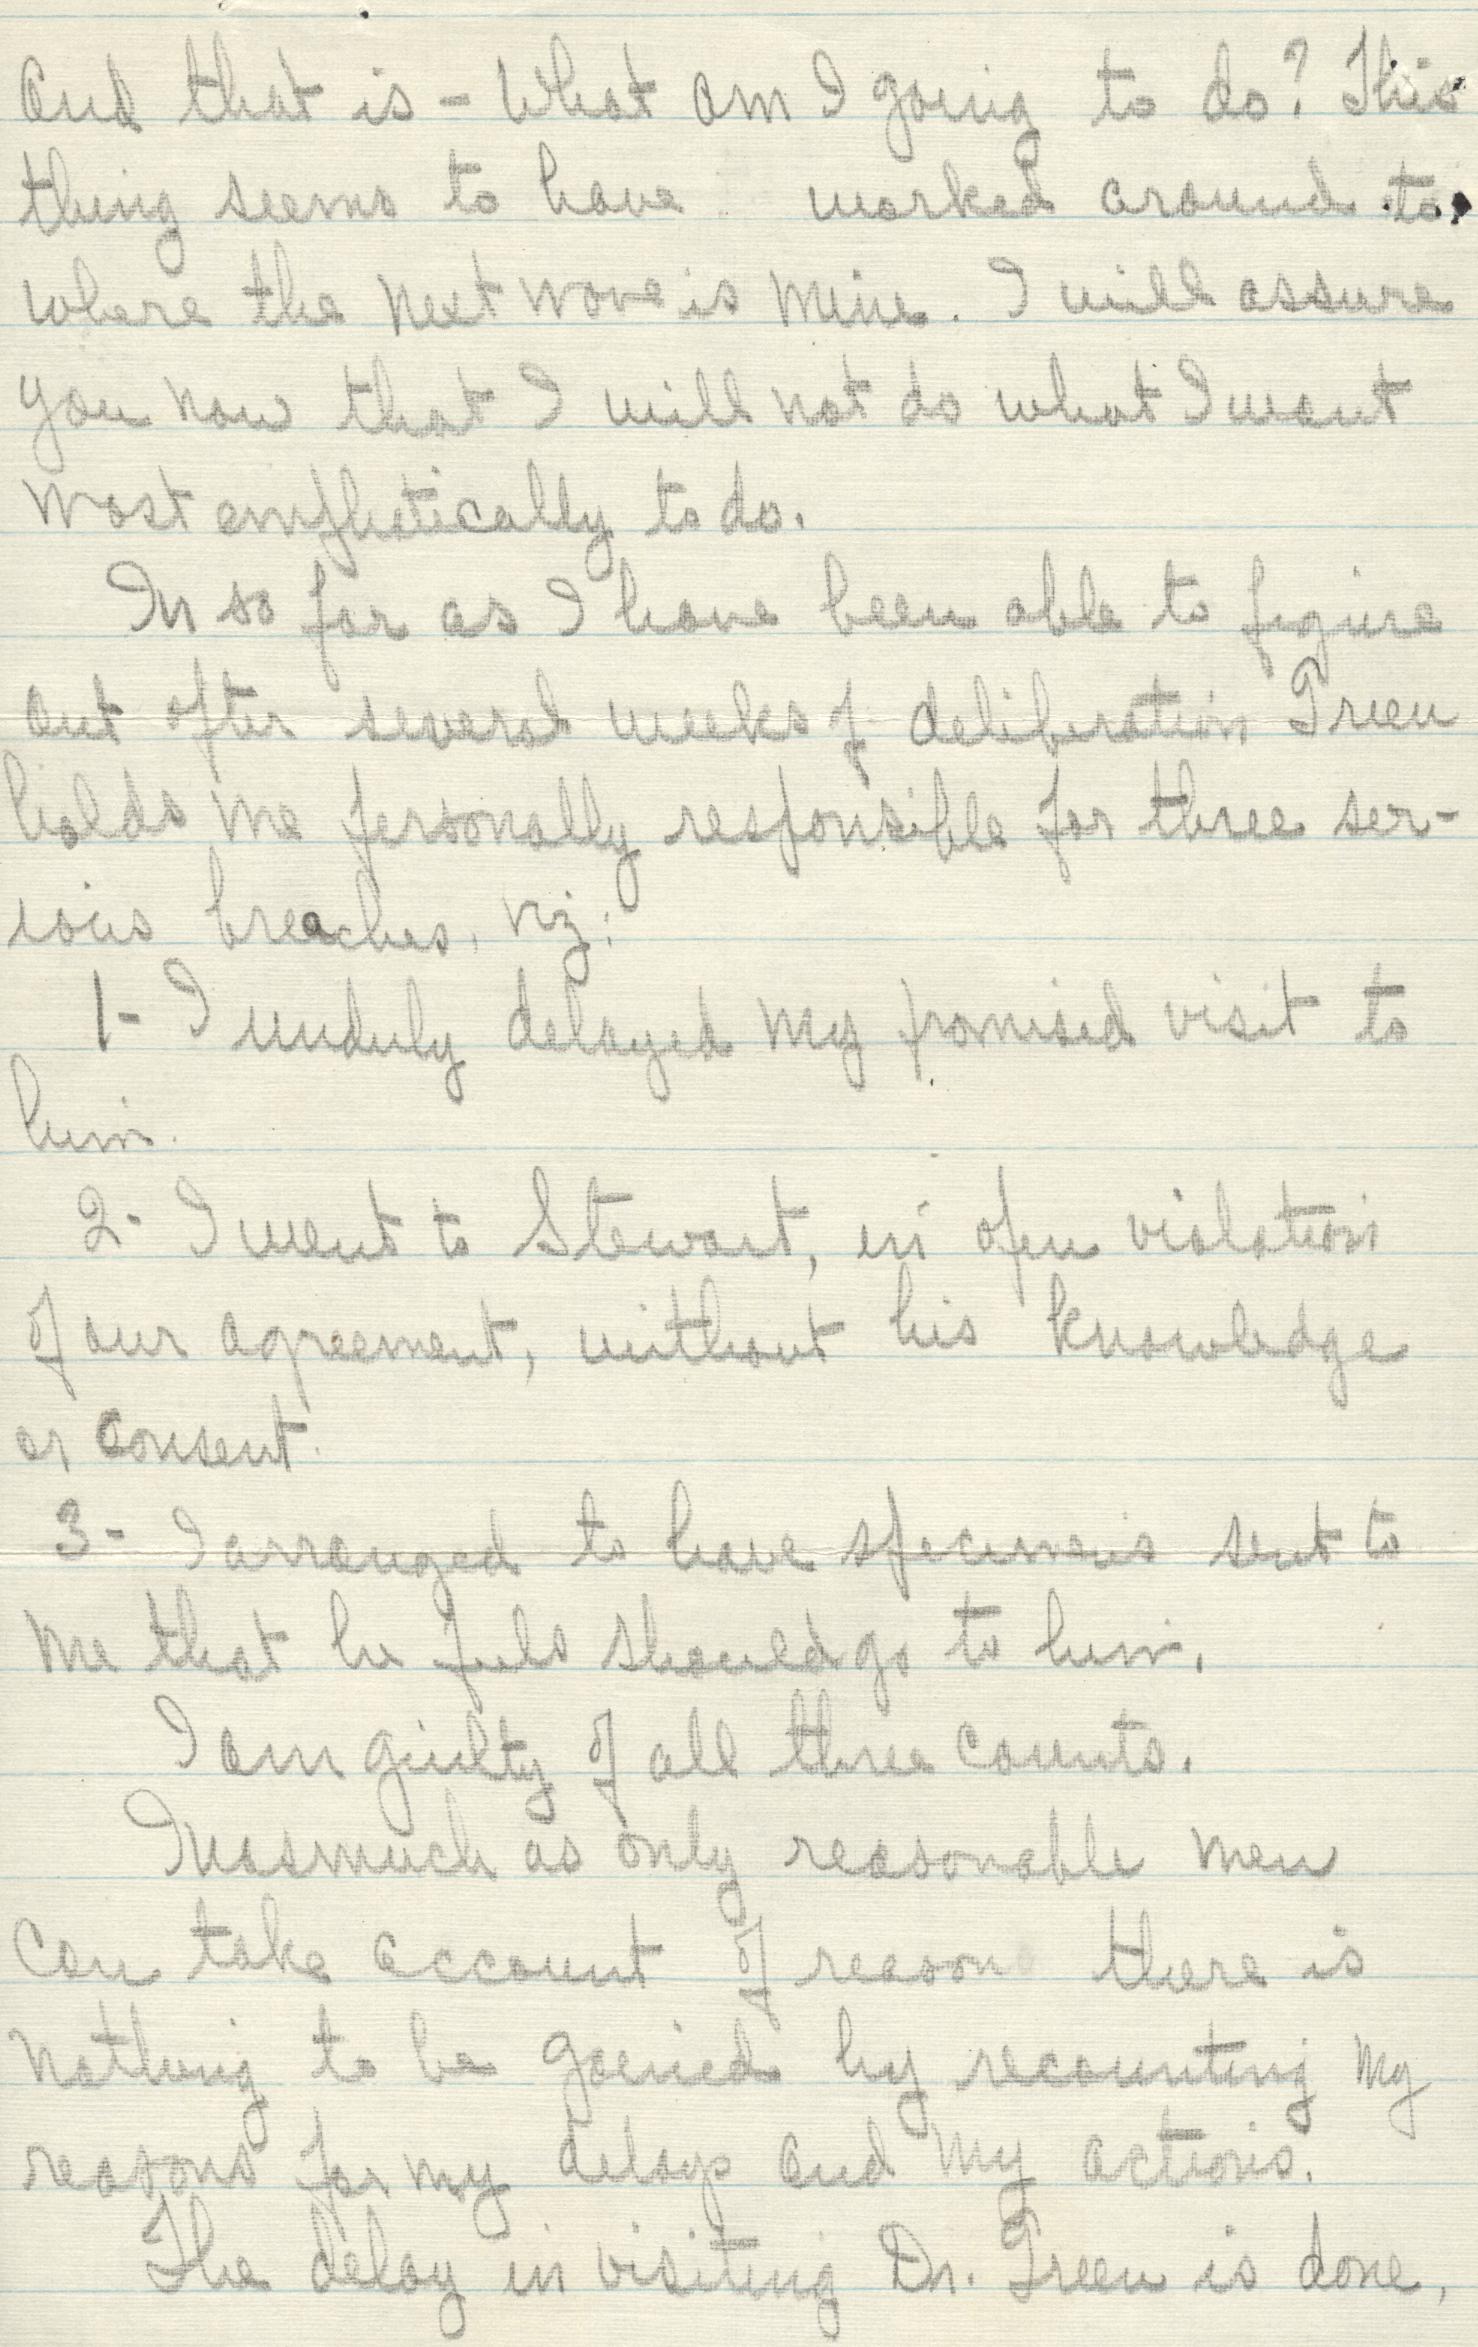 and that is - What am I going to do? This
thing seems to have worked around to
where the next move is mine. I will assure
you now that I will not do what I want
most emphatically to do.
In so far as I have been able to figure
out after several weeks of deliberation Green
holds me personally responsible for three ser-
ious breaches, viz:
1- I unduly delayed my promised visit to
him.
2- I went to Stewart, in open violation
of our agreement, without his knowledge
or consent.
3- I arranged to have specimens sent to
me that he feels should go to him.
I am guilty of all three counts.
Inasmuch as only reasonable men
can take account of reason there is
nothing to be gained by recounting my
reasons for my delays and my actions.
The delay in visiting Dr. Green is done,